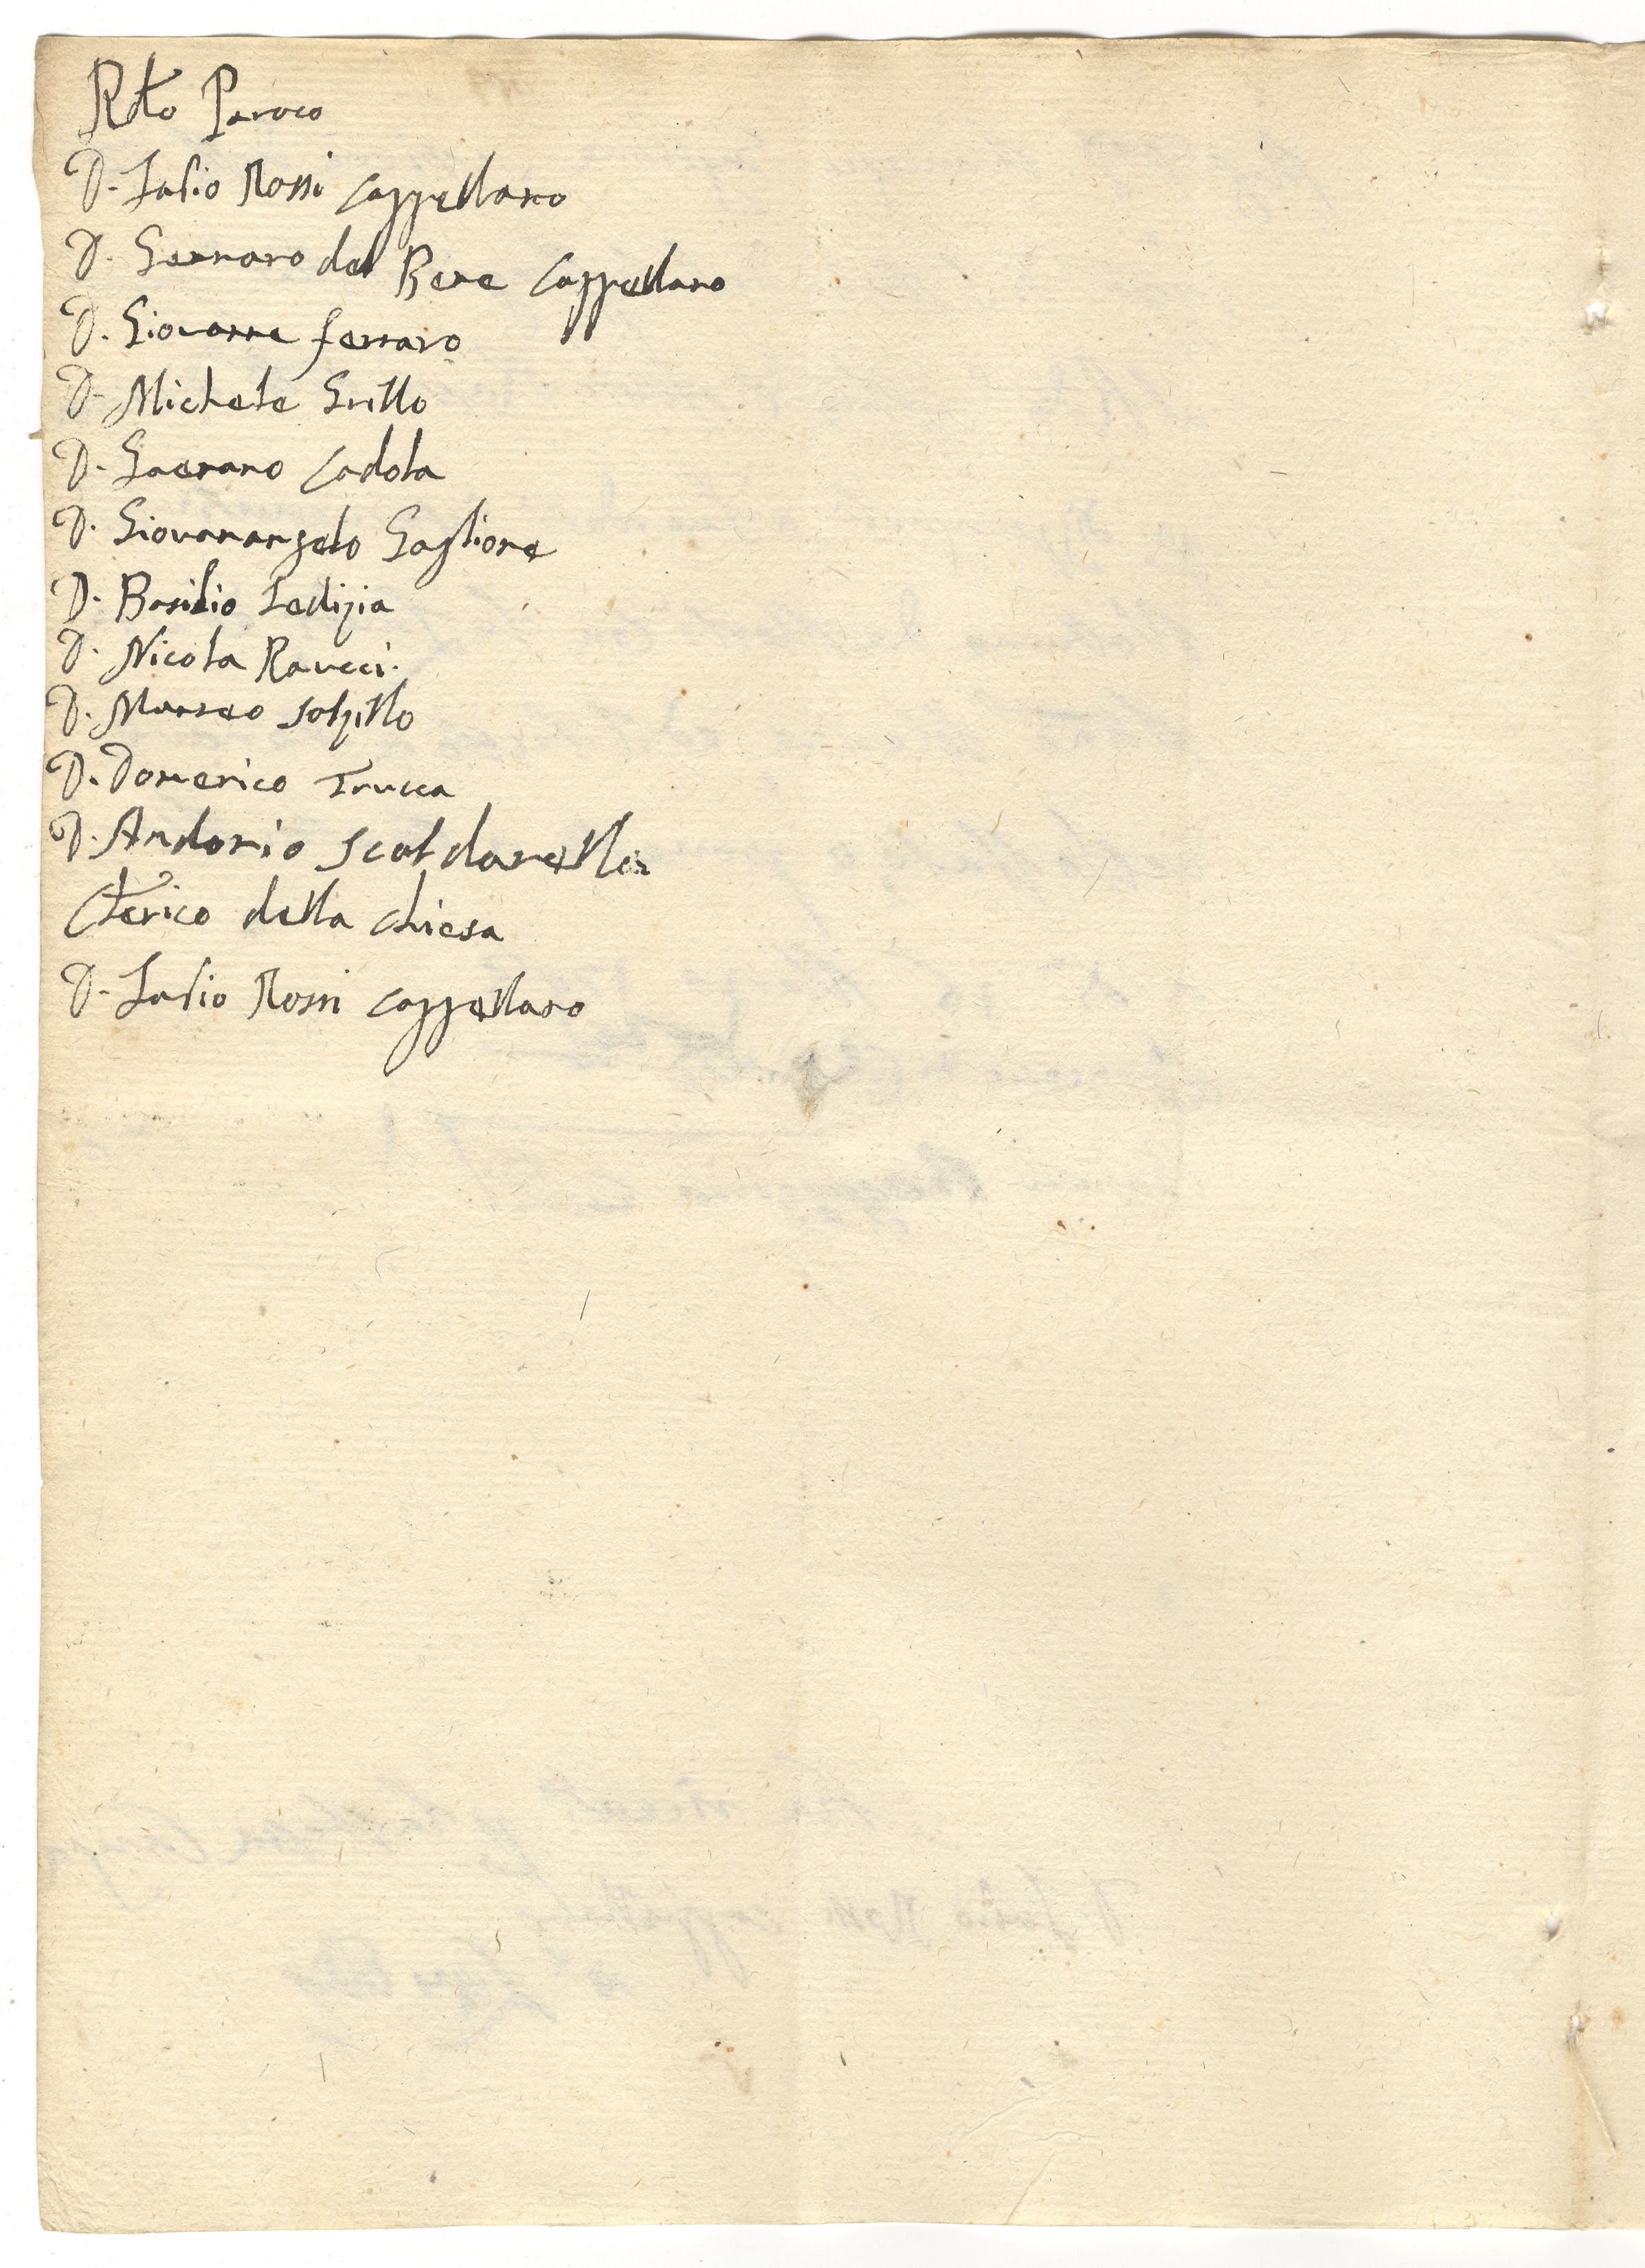 Rdto Paroco
D. Iulio Rossi Cappellano
D. Gennaro del Bene Cappellano
D. Giovanne ferraro
D. Michele Grillo
D. Gaenano Cadola
D. Giovanangelo Gaglione
D. Basilio Ledizia
D. Nicola Raucci.
D. Manseo Solpillo
D. Domenico Trucca
D. Andonio Scaldarella
Clerico della chiesa
D. Iulio Rossi Cappellano